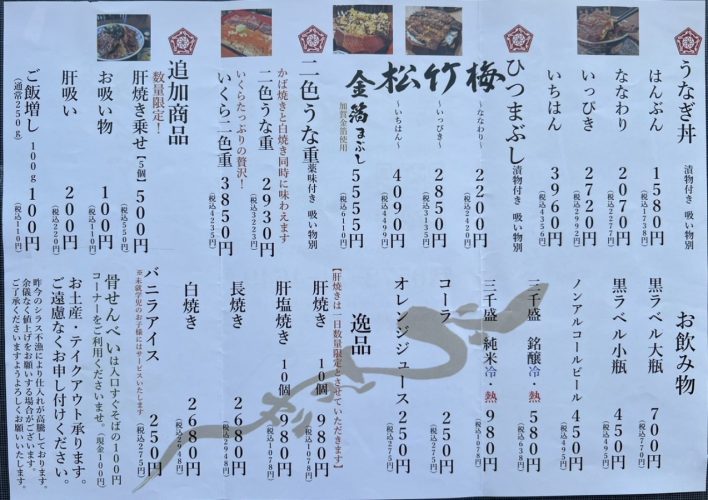 うなぎ丼 漬物付き 吸い物別
はんぶん 1580円
(税込1738円)
ななわり 2070円
(税込2277円)
いっぴき 2720円
(税込2992円)
いちはん 3960円
(税込4356円)
ひつまぶし 漬物付き 吸い物別
梅 ～ななわり～ 2200円
(税込2420円)
竹 ～いっぴき～ 2850円
(税込3135円)
松 ～いちはん～ 4090円
(税込4499円)
金箔まぶし 5555円
加賀金箔使用
(税込6110円)
二色うな重 薬味付き 吸い物別
かば焼きと白焼き同時に味わえます
二色うな重 2930円
(税込3223円)
いくらたっぷりの贅沢！
いくら二色重 3850円
(税込4235円)
追加商品
数量限定！
肝焼き乗せ【5個】 500円
(税込550円)
お吸い物 100円
(税込110円)
肝吸い 200円
(税込220円)
ご飯増し 100g 100円
(通常250g)
(税込110円)
お飲み物
黒ラベル大瓶 700円
(税込770円)
黒ラベル小瓶 450円
(税込495円)
ノンアルコールビール 450円
(税込495円)
三千盛 銘醸 冷・熱 580円
三千盛 純米 冷・熱 980円
(税込1078円)
コーラ 250円
(税込275円)
オレンジジュース 250円
(税込275円)
逸品
【肝焼きは一日数量限定とさせていただきます】
肝焼き 10個 980円
(税込1078円)
肝塩焼き 10個 980円
(税込1078円)
長焼き 2680円
(税込2948円)
白焼き 2680円
(税込2948円)
バニラアイス 250円
※未就学児のお子様にはサービスいたします
(税込275円)
骨せんべいは入口すぐそばの100円
コーナーをご利用くださいませ。(現金100円)
お土産・テイクアウト承ります。
ご遠慮なくお申し付けください。
昨今のシラス不漁により仕入れが高騰しております。
余儀なく値上げをお願いする場合がございます。
ご了承くださいますようよろしくお願いいたします。